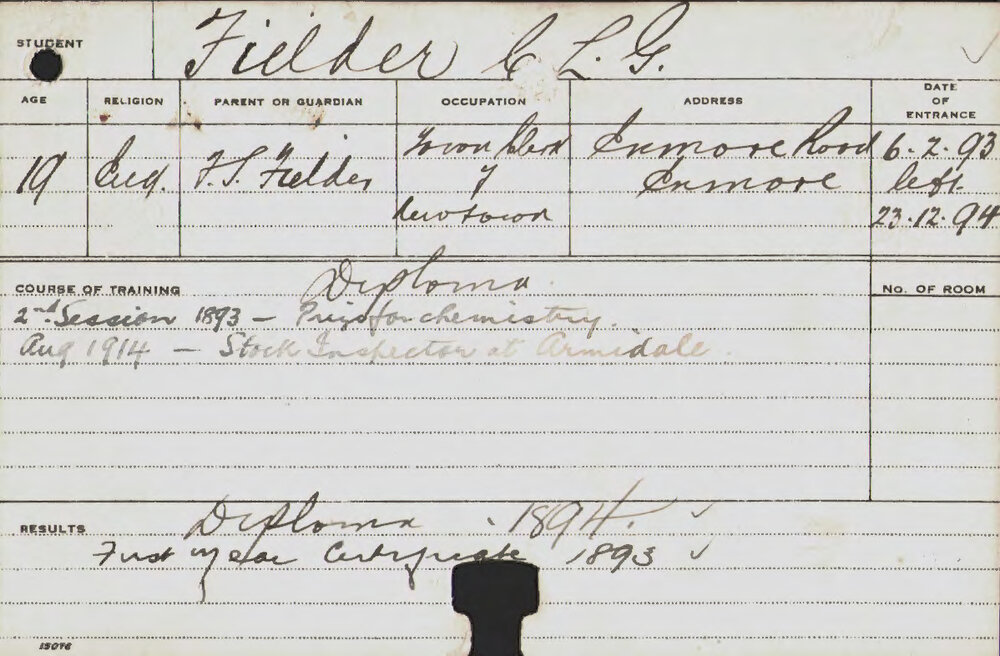 STUDENT Fielder C L. G.
AGE RELIGION PARENT OR GUARDIAN OCCUPATION ADDRESS DATE OF ENTRANCE
19 Eng. F.S. Fielder Town Clerk Enmore Road 6.2.93
of Enmore left
Newtown 23.12.94
COURSE OF TRAINING Diploma No. OF ROOM
2nd Session 1893 - Prize for chemistry.
Aug 1914 - Stock Inspector at Armidale
RESULTS Diploma . 1894.
First year Certificate 1893
15076